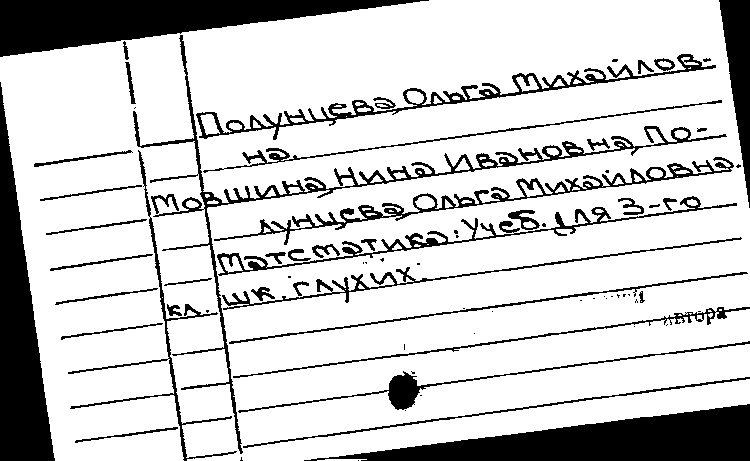 Полунцева, Ольга Михайлов-
на.
Мовшина, Нина Ивановна, По-
лунцева, Ольга Михайловна.
Математика: Учеб. для 3-го
кл. шк. глухих.
автора